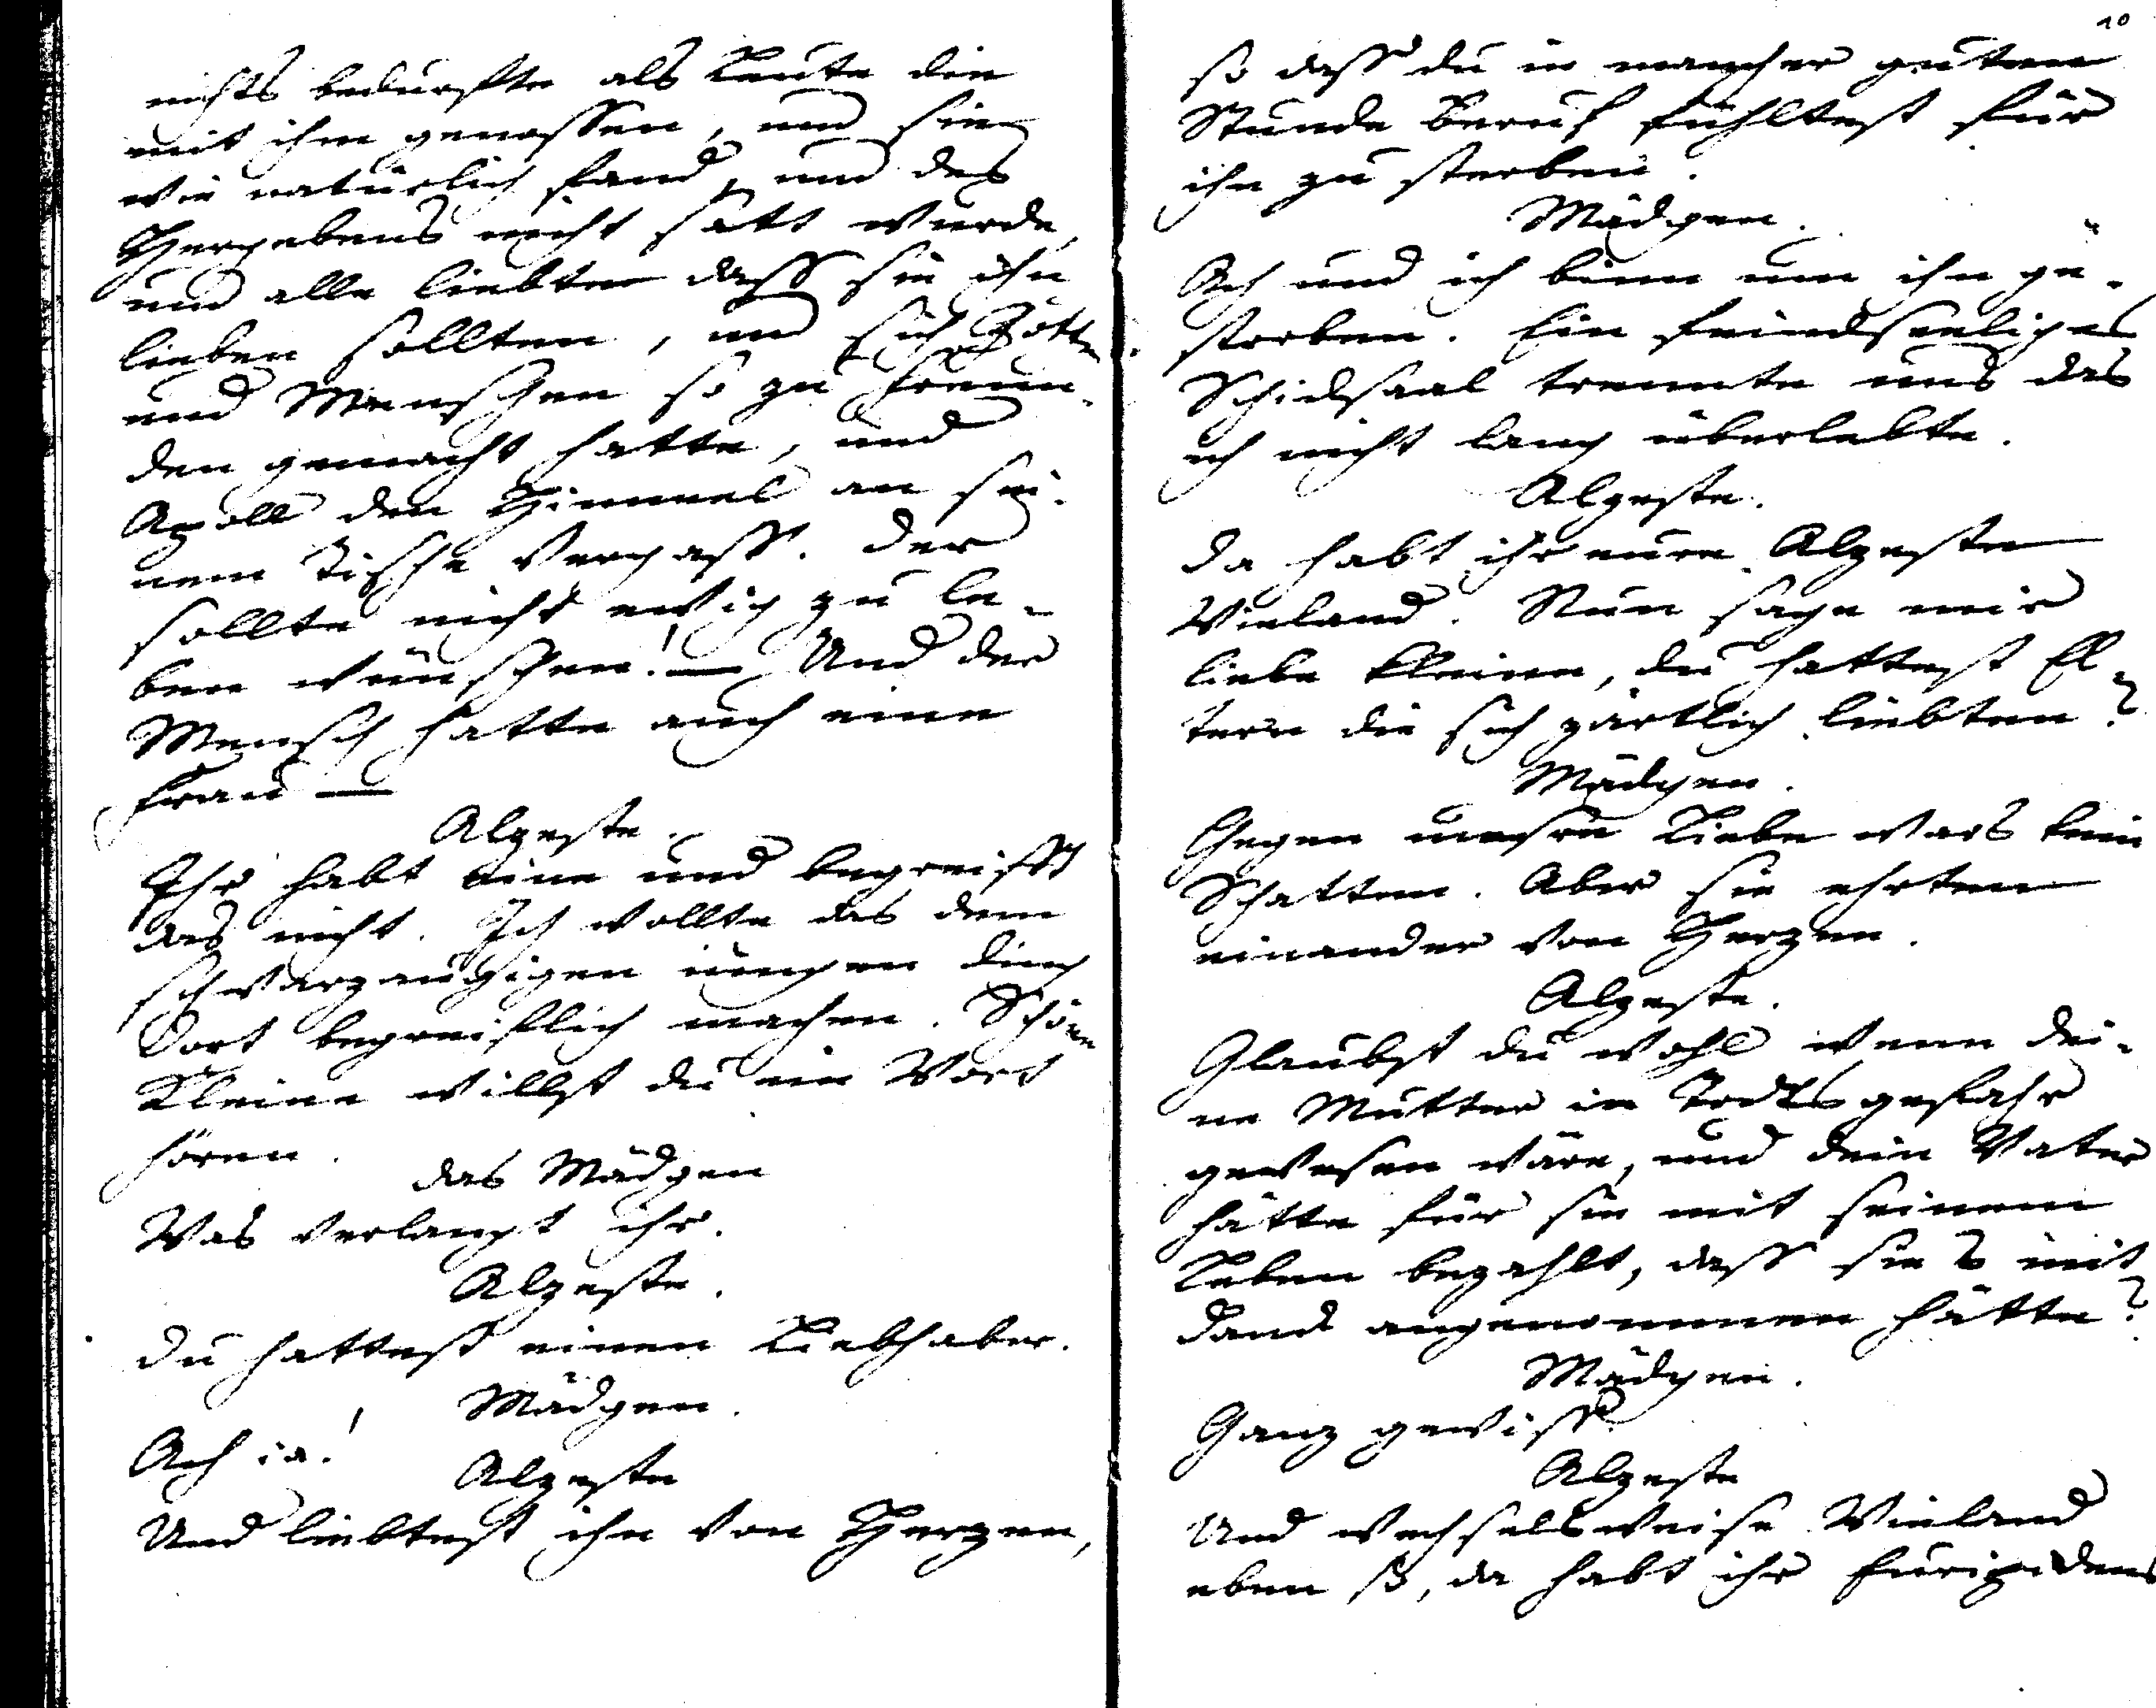 nichts bedurfte als Leute die
mit ihm genossen, und sie
wie natürlich fand, und des
Hergebens nicht satt wurde,
und alle liebten dass sie ihn
lieben sollten, und sich Götter
und Menschen so zu Freun-
den gemacht hatte, und
Apoll den Himmel an sei-
nem Tische vergass. der
sollte nicht ewig zu le-
ben wünschen! — Und der
Mensch hatte auch eine
Frau —
Alzeste.
Ihr habt eine und begreifft
das nicht. Ich wollte das dem
schwarzaugigen iungen ding
dort begreiflich machen. Schöne
Kleine willst du ein Wort
hören.
das Mädgen
Was verlangt ihr.
Alzeste.
du hattest einen Liebhaber.
Mädgen.
Ach ia!
Alzeste
Und liebtest ihn von Herzen,
10
so dass du in mancher guten
Stunde Beruf fühltest für
ihn zu sterben.
Mädgen.
Ach und ich binn um ihn ge-
storben. Ein feindseeliges
Schicksaal trennte uns das
ich nicht lang überlebte.
Alzeste.
da habt ihr eure Alzeste
Wieland. Nun sage mir
liebe Kleine, du hattest El-
tern die sich zärtlich liebten?
Mädgen.
Gegen unsre Liebe wars kein
Schatten. Aber sie ehrten
einander von Herzen.
Alzeste.
Glaubst du wohl wenn dei-
ne Mutter in Todtsgefahr
gewesen wäre, und dein Vater
hätte für sie mit seinem
Leben bezahlt, dass sie's mit
danck angenommen hätte?
Mädgen.
Ganz gewiss.
Alzeste
Und wechselsweise Wieland
eben so, da habt ihr Euripidens